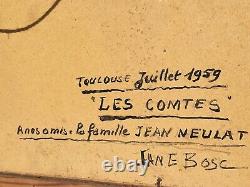 Toulouse Juillet 1959
"LES COMTES"
A nos amis. la famille JEAN NEULAT
JANE BOSC